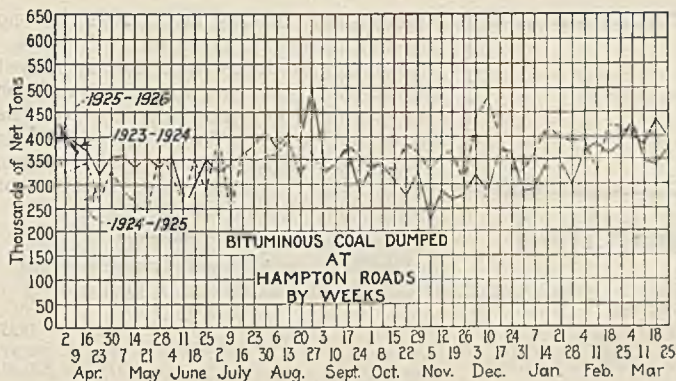 Thousands of Net Tons
650
600
550
500
450
400
350
300
250
200
150
100
50
0
1925-1926
1923-1924
1924-1925
BITUMINOUS COAL DUMPED
AT
HAMPTON ROADS
BY WEEKS
2 16 30 14 28 11 25 9 23 6 20 3 17 1 15 29 12 26 10 24 7 21 4 18 4 18
9 23 7 21 4 18 2 16 30 13 27 10 24 8 22 5 19 3 17 31 14 28 11 25 11 25
Apr. May June July Aug. Sept. Oct. Nov. Dec. Jan Feb. Mar